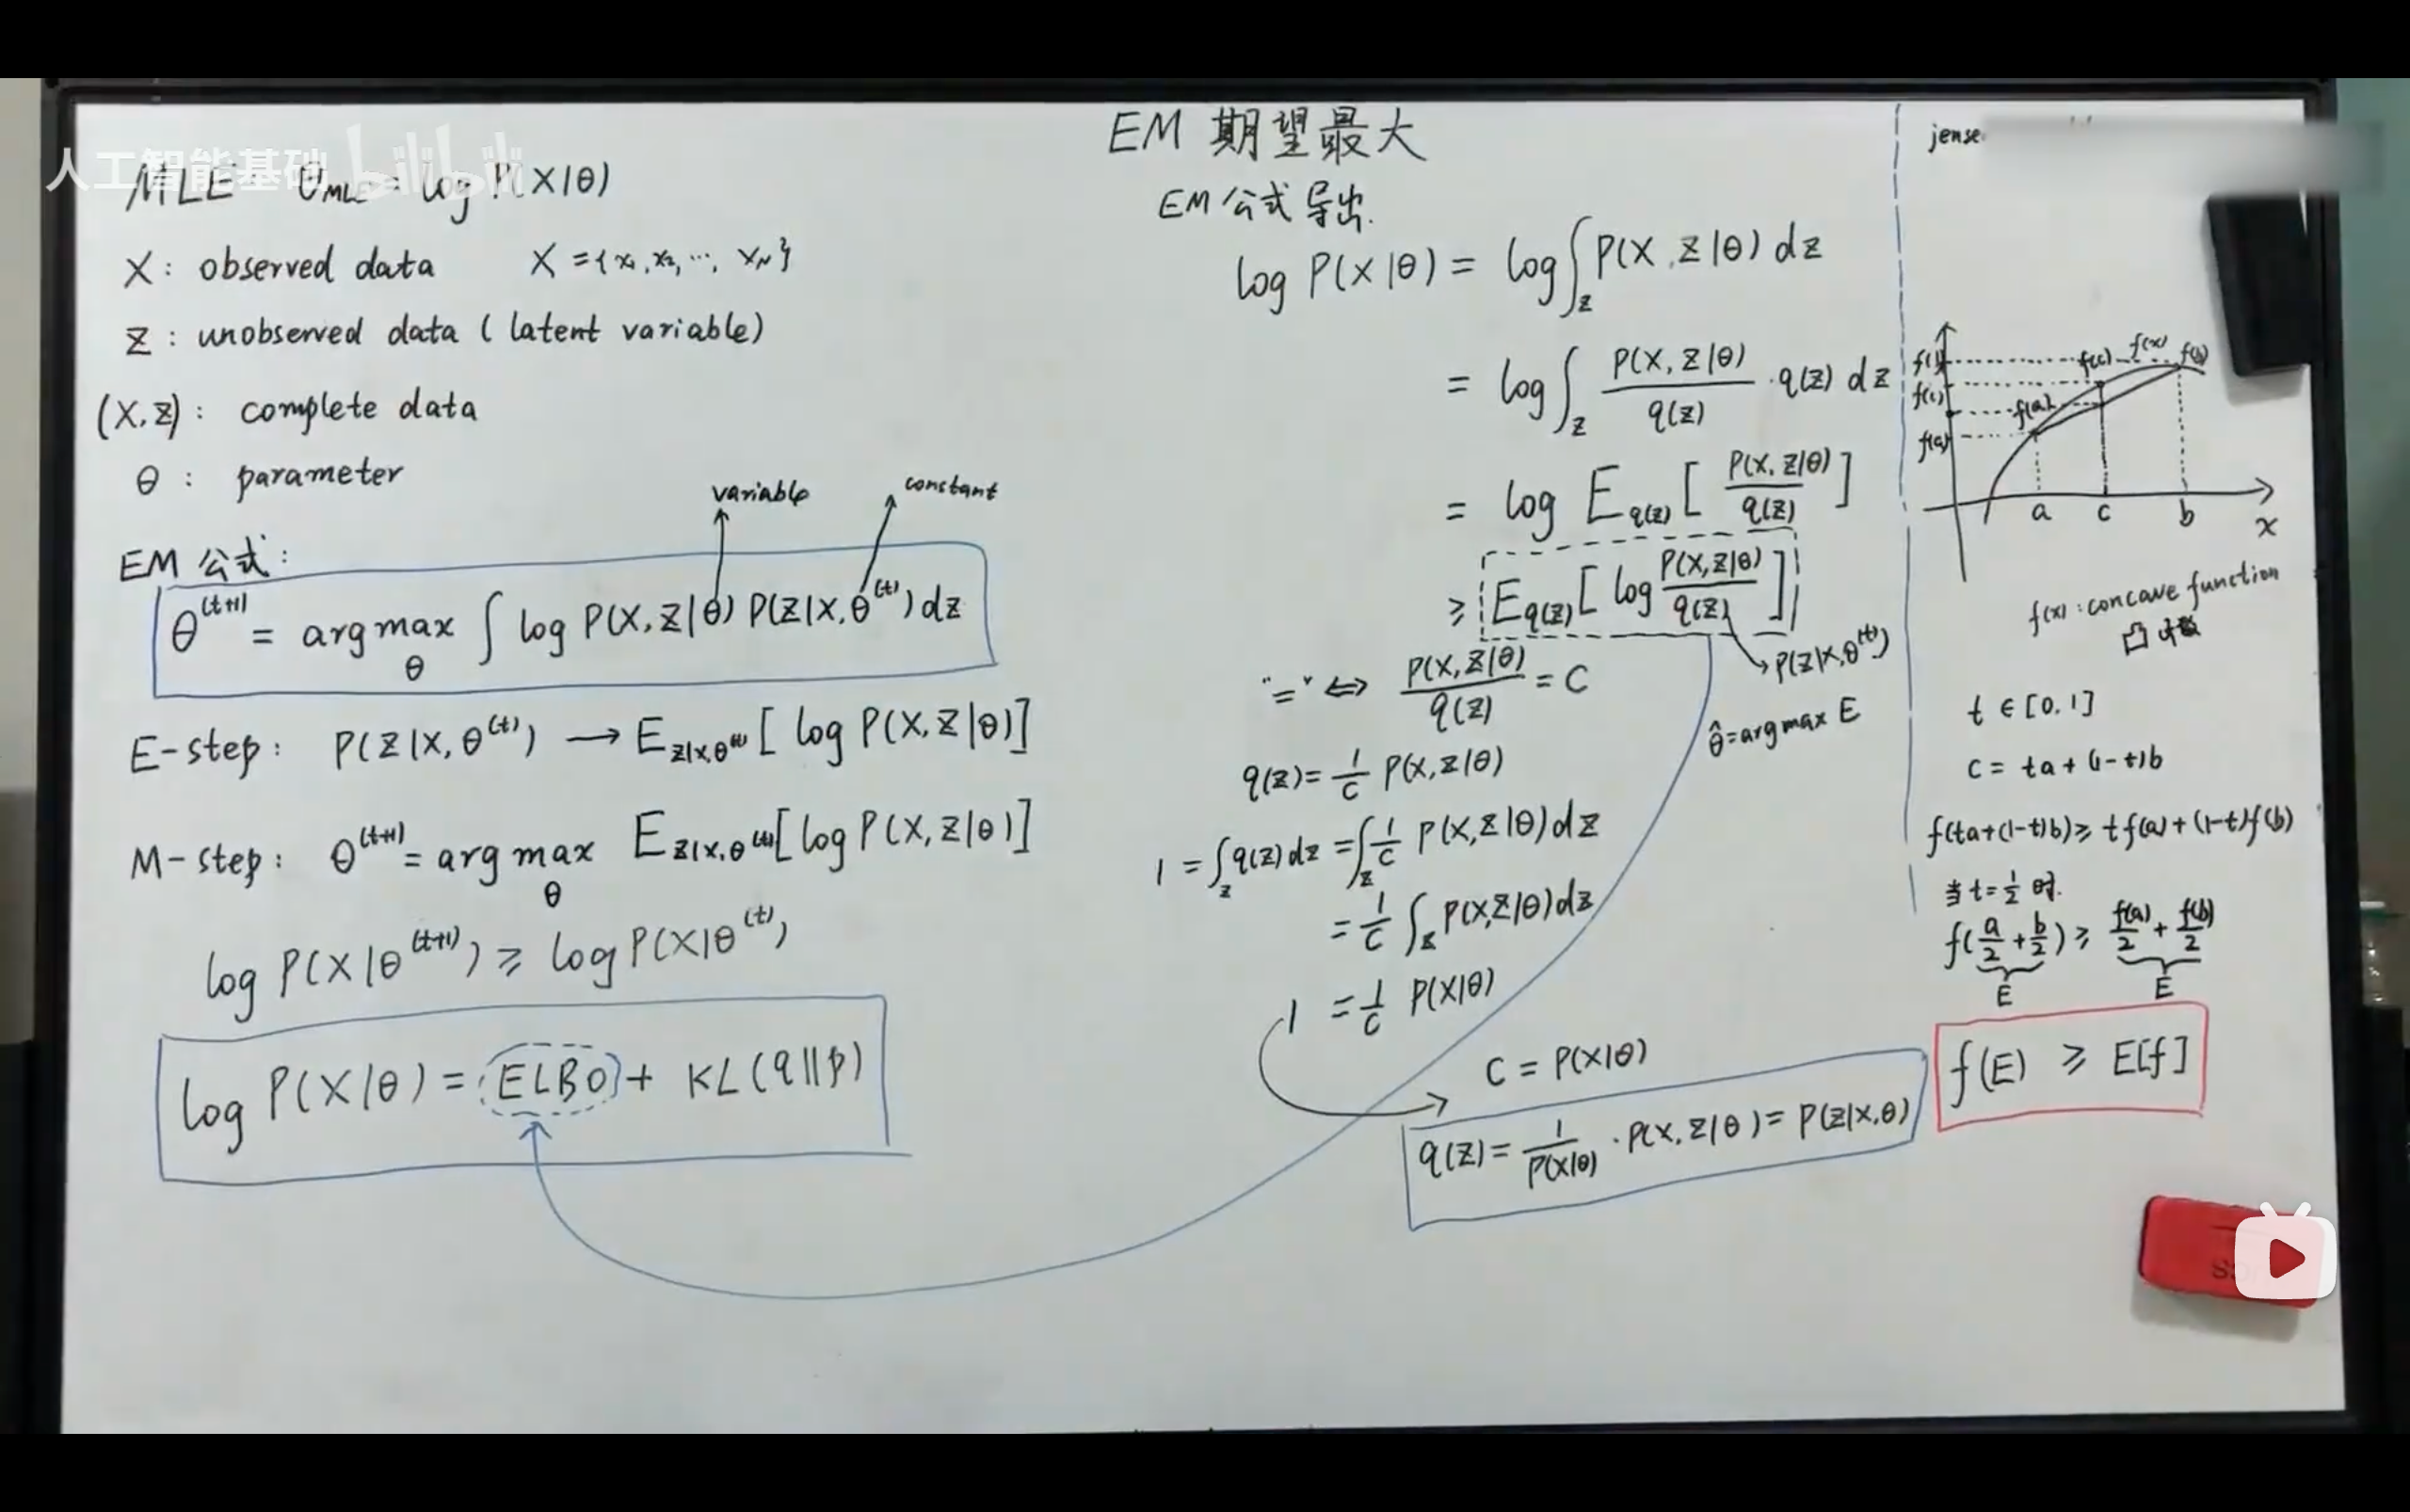 EM 期望最大
人工智能基础 bilibili
MLE: θ_MLE = log P(X|θ)
X: observed data X = {x₁, x₂, ..., x_N}
Z: unobserved data (latent variable)
(X,Z): complete data
θ: parameter
variable constant
EM 公式:
θ^(t+1) = arg max_θ ∫ log P(X,Z|θ) P(Z|X,θ^(t)) dz
E-step: P(Z|X,θ^(t)) → E_{Z|X,θ^(t)} [log P(X,Z|θ)]
M-step: θ^(t+1) = arg max_θ E_{Z|X,θ^(t)} [log P(X,Z|θ)]
log P(X|θ^(t+1)) ≥ log P(X|θ^(t))
log P(X|θ) = ELBO + KL(q||p)
EM 公式导出.
log P(X|θ) = log ∫_Z P(X,Z|θ) dz
= log ∫_Z P(X,Z|θ)/q(Z) · q(Z) dz
= log E_q(Z) [P(X,Z|θ)/q(Z)]
≥ E_q(Z) [log P(X,Z|θ)/q(Z)]
→ P(Z|X,θ^(t))
"=" ⇔ P(X,Z|θ)/q(Z) = C
θ̂ = arg max E
q(Z) = 1/C P(X,Z|θ)
1 = ∫_Z q(Z) dz = ∫_Z 1/C P(X,Z|θ) dz
= 1/C ∫_Z P(X,Z|θ) dz
1 = 1/C P(X|θ)
C = P(X|θ)
q(Z) = 1/P(X|θ) · P(X,Z|θ) = P(Z|X,θ)
jense
f(c) f(x) f(b)
f(c)
f(a)
f(a)
a c b
x
f(x): concave function
凸
t ∈ [0,1]
c = ta + (1-t)b
f(ta+(1-t)b) ≥ tf(a) + (1-t)f(b)
当 t = 1/2 时.
f(a/2 + b/2) ≥ f(a)/2 + f(b)/2
E E
f(E) ≥ E[f]